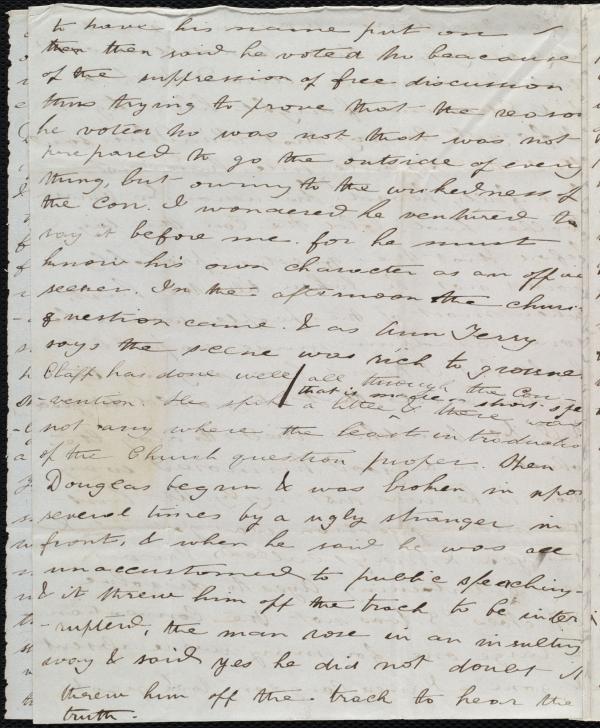 to have his name put on
then then said he voted No beacause
of the suppression of free discussion
thus trying to prove that the reason
he voted No was not that was not
prepared to go the outside of every
thing, but owing to the wickedness of
the Con. I wondered he ventured to
say it before me for he must
know his own character as an office
seeker. In the afternoon the church
question came. & as Ann Terry
says the scene was rich to
Claff has done well all through the Con-
that is made a short spe
-vention. He spoke a little & there was
not any where the least introductio
of the Church question proper. Then
Douglas begun & was broken in upon
several times by a ugly stranger in
front, & when he said he was all
unaccustomed to public speaking-
& it threw him off the track to be inter
-rupterd, the man rose in an insulting
way & said yes he did not doubt it
threw him off the track to hear the
truth.